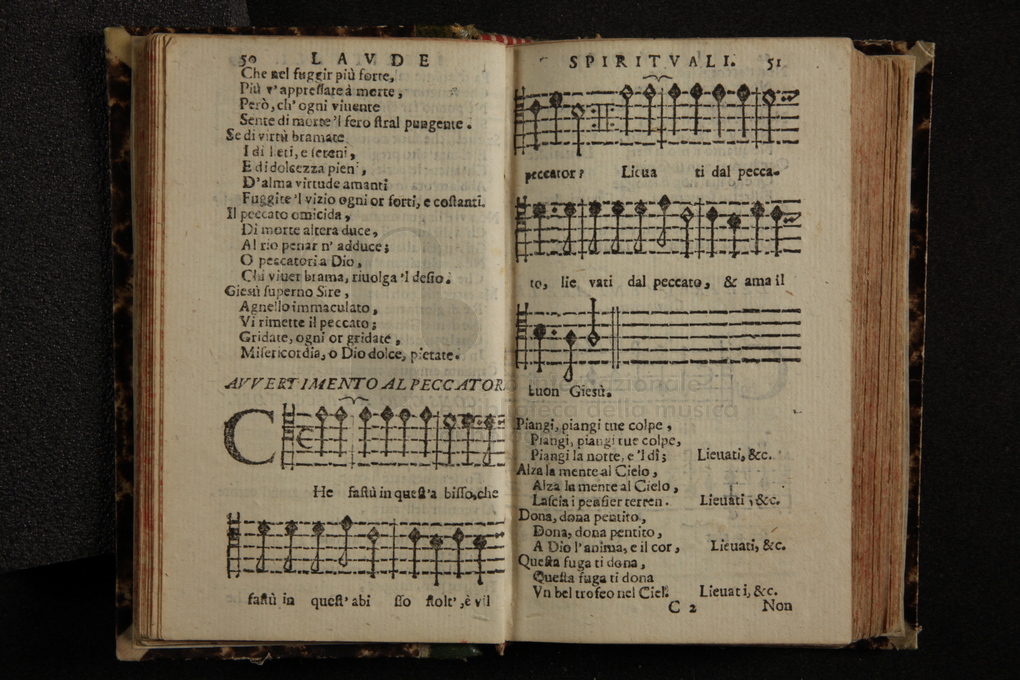 50 LAVDE
Che nel fuggir più forte,
Più v'appressate à morte,
Però, ch' ogni viuente
Sente di morte 'l fero stral pungente.
Se di virtù bramate
I dì lieti, e sereni,
E di dolcezza pieni,
D'alma virtude amanti
Fuggite 'l vizio ogni or forti, e costanti.
Il peccato omicida,
Di morte altera duce,
Al rio penar n' adduce;
O peccatori a Dio,
Chi viuer brama, riuolga 'l desio.
Giesù superno Sire,
Agnello immaculato,
Vi rimette il peccato;
Gridate, ogni or gridate,
Misericordia, o Dio dolce, pietate.
AVVERTIMENTO AL PECCATOR
CHe fastù in quest'a bisso, che
fastù in quest' abi sso stolt', è vil
SPIRITVALI. 51
peccator? Lieua ti dal pecca-
to, lie vati dal peccato, & ama il
buon Giesù.
Piangi, piangi tue colpe,
Piangi, piangi tue colpe,
Piangi la notte, e 'l dì; Lieuati, &c.
Alza la mente al Cielo,
Alza la mente al Cielo,
Lascia i pensier terren. Lieuati, &c.
Dona, dona pentito,
Dona, dona pentito,
A Dio l'anima, e il cor, Lieuati, &c.
Questa fuga ti dona,
Questa fuga ti dona
Vn bel trofeo nel Ciel. Lieuati, &c.
C 2 Non
internazionale
biblioteca della musica